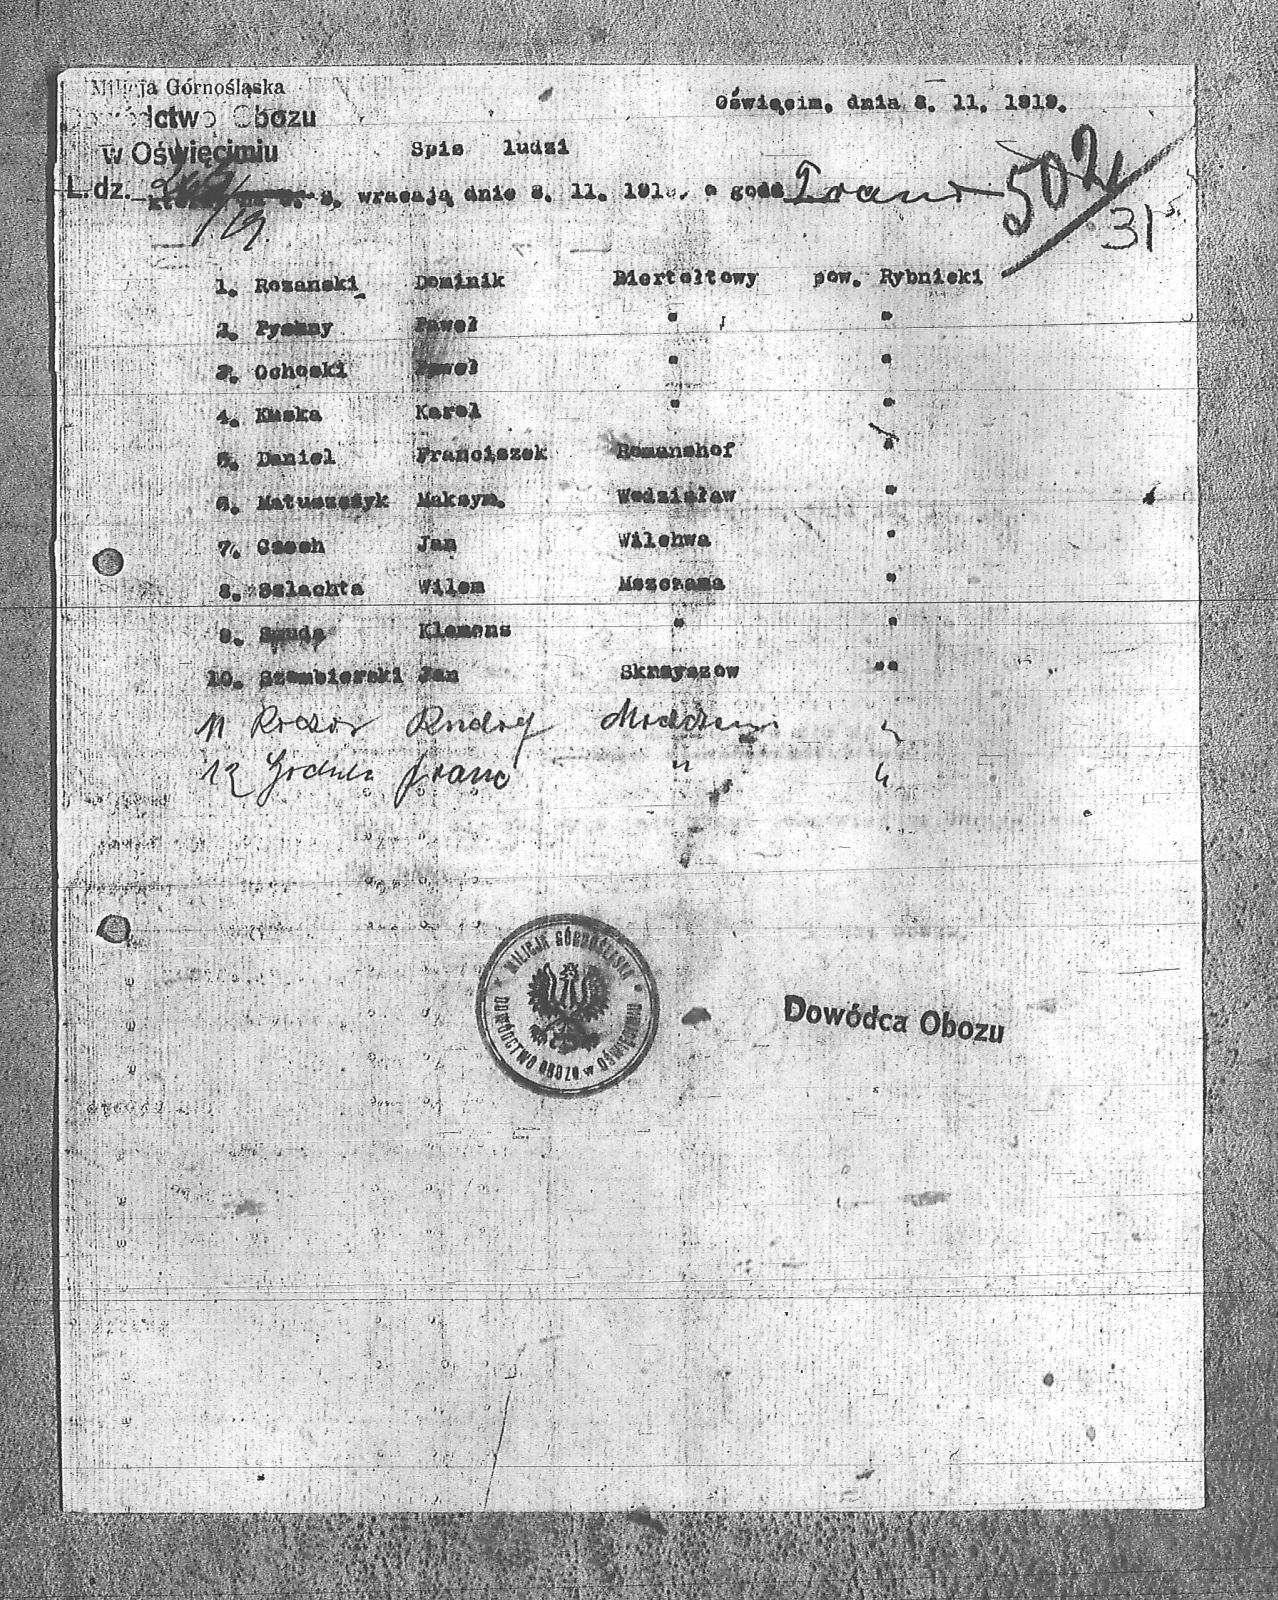 Milicja Górnośląska
Dowództwo Obozu
w Oświęcimiu
L. dz.
Oświęcim, dnia 8. 11. 1919.
Spis ludzi
wracają dnie 8. 11. 1919. o godz
502/31
1. Rozanski Dominik Biertołtowy pow. Rybnicki
2. Pyszny Paweł " "
3. Ochoski Paweł " "
4. Kuska Karol " "
5. Daniel Franciszek Romanshof "
6. Matuszczyk Maksym. Wodzisław "
7. Czech Jan Wilchwa "
8. Szlachta Wilem Mszczana "
9. Klemens " "
10. Szembierski Jan Skrzyszow ""
11 "
12 Franc " "
MILICJA GÓRNOŚLĄSKA
DOWÓDCTWO OBOZU w OŚWIĘCIMIU
Dowódca Obozu